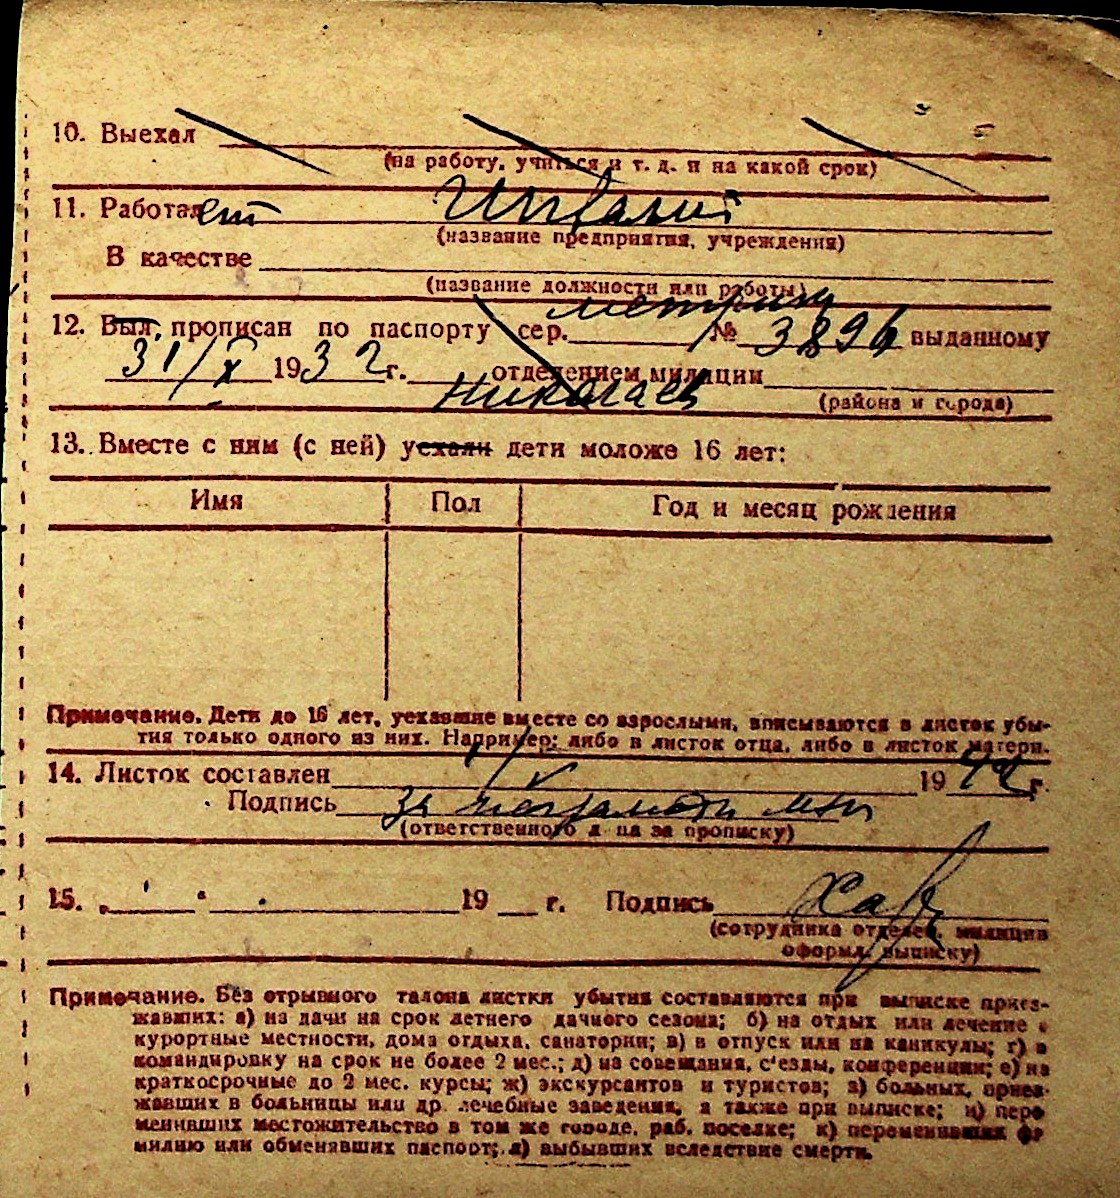 10. Выехал
(на работу, учиться и т. д. и на какой срок)
11. Работает
(название предприятия, учреждения)
В качестве
(название должности или работы)
метрики
12. Был, прописан по паспорту сер. № 3896 выданному
31/X 1932 г. отделением милиции
Николаев
(района и города)
13. Вместе с ним (с ней) уехали дети моложе 16 лет:
Имя Пол Год и месяц рождения
Примечание. Дети до 16 лет, уехавшие вместе со взрослыми, вписываются в листок убы-
тия только одного из них. Например: либо в листок отца, либо в листок матери.
14. Листок составлен 19 г.
Подпись за
(ответственного л ца за прописку)
15. „ " 19 г. Подпись
(сотрудника отделен. милиции
оформл. выписку)
Примечание. Без отрывного талона листки убытия составляются при выписке приез-
жавших: а) на дачи на срок летнего дачного сезона; б) на отдых или лечение в
курортные местности, дома отдыха, санатории; в) в отпуск или на каникулы; г) в
командировку на срок не более 2 мес.; д) на совещания, с'езды, конференции; е) на
краткосрочные до 2 мес. курсы; ж) экскурсантов и туристов; з) больных, приез-
жавших в больницы или др. лечебные заведения, а также при выписке; и) пере
менивших местожительство в том же городе, раб. поселке; к) переменивших фа
милию или обменявших паспорт; л) выбывших вследствие смерти.